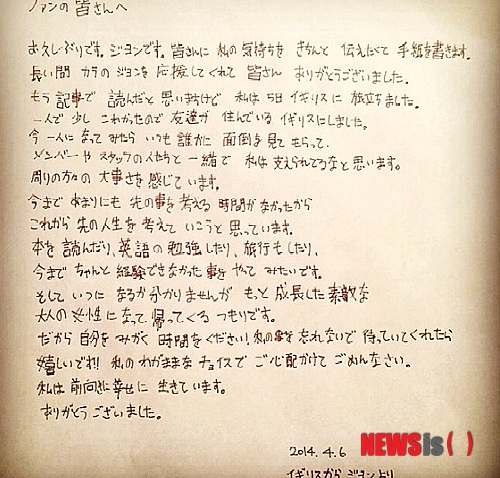 ファンの皆さんへ
お久しぶりです。ジヨンです。皆さんに 私の気持ちを きちんと 伝えたくて 手紙を書きます。
長い間 カラの ジヨンを 応援してくれて 皆さん ありがとうございました。
もう 記事で 読んだと 思いますけど 私は 5日 イギリスに 旅立ちました。
一人で 少し こわかったので 友達が 住んでいる イギリスにしました。
今 一人に なって みたら いつも 誰かに 面倒を見て もらって、
メンバーや スタッフの 人たちと 一緒で 私は 支えられてるなと 思います。
周りの方々の 大事さを 感じて います。
今まで あまりにも 先の事を 考える 時間が なかったから
これから 先の人生を 考えて いこうと 思っています。
本を 読んだり、英語の 勉強したり、旅行もしたり、
今まで ちゃんと 経験できなかった事を やって みたいです。
そして いつに なるか分かりませんが もっと 成長した 素敵な
大人の 女性に なって 帰ってくる つもりです。
だから 自分を みがく 時間をください! 私の事を 忘れないで 待っていてくれたら
嬉しいです!! 私の わがままな チョイスで ご心配かけて ごめんなさい。
私は 前向きに 幸せに 生きています。
ありがとうございました。
2014. 4. 6
イギリスから ジヨンより
NEWSis( )